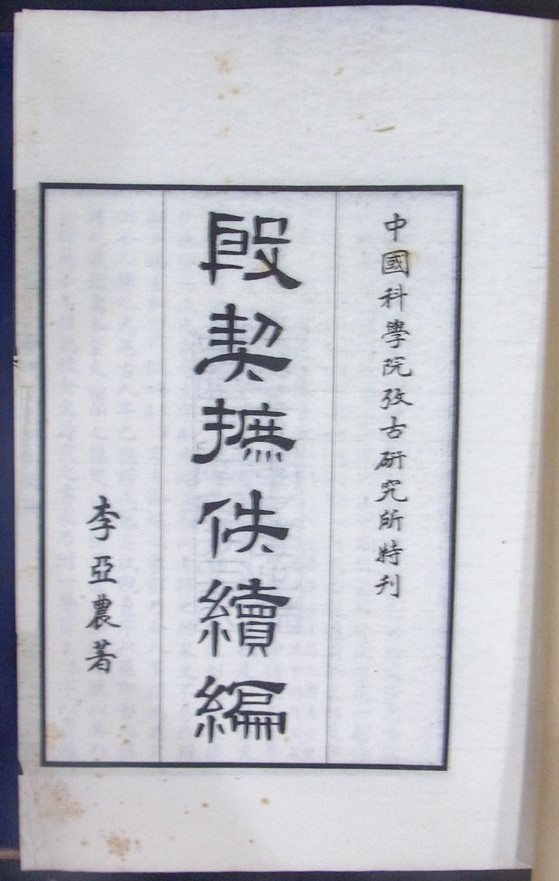 中國科學院攷古研究所特刊
殷契摭佚續編
李亞農著